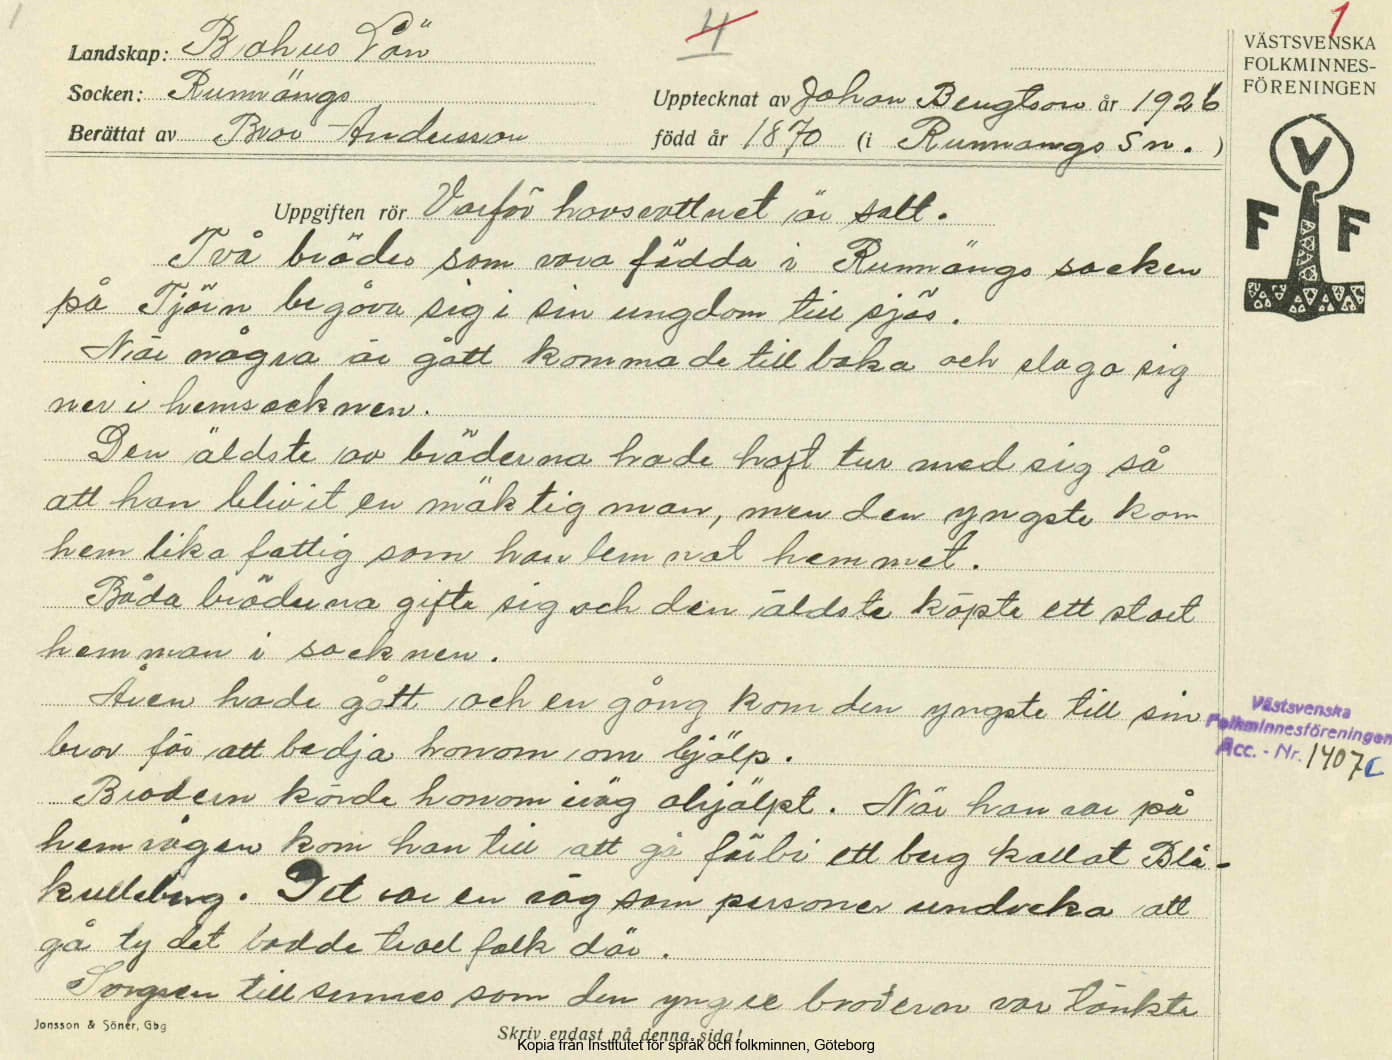 1
4
1
Landskap: Bohus Län
Socken: Runnängs
Berättat av Bror Andersson
Upptecknat av Johan Bengtson år 1926
född år 1870 (i Runnangs Sn. )
VÄSTSVENSKA
FOLKMINNES-
FÖRENINGEN
V
F F
Uppgiften rör Varför havsvattnet är salt.
Två bröder som vara födda i Runnängs socken
på Tjörn begåva sig i sin ungdom till sjös.
När några år gått komma de till baka och slaga sig
ner i hemsocknen.
Den äldste av bröderna hade haft tur med sig så
att han blivit en mäktig man, men den yngste kom
hem lika fattig som han lemnat hemmet.
Båda bröderna gifte sig och den äldste köpte ett stort
hemman i socknen.
Åren hade gått och en gång kom den yngste till sin
bror för att bedja honom om hjälp.
Brodern körde honom iväg ohjälpt. När han var på
hemvägen kom han till att gå förbi ett berg kallat Blå-
kulleberg. Det var en väg som personer undveka att
gå ty det bodde troll folk där.
Sorgsen till sinnes som den yngre brodern var tänkte
Västsvenska
Folkminnesföreningen
Acc. - Nr. 1407 C
Jonsson & Söner, Gbg
Skriv endast på denna sida!
Kopia från Institutet för språk och folkminnen, Göteborg